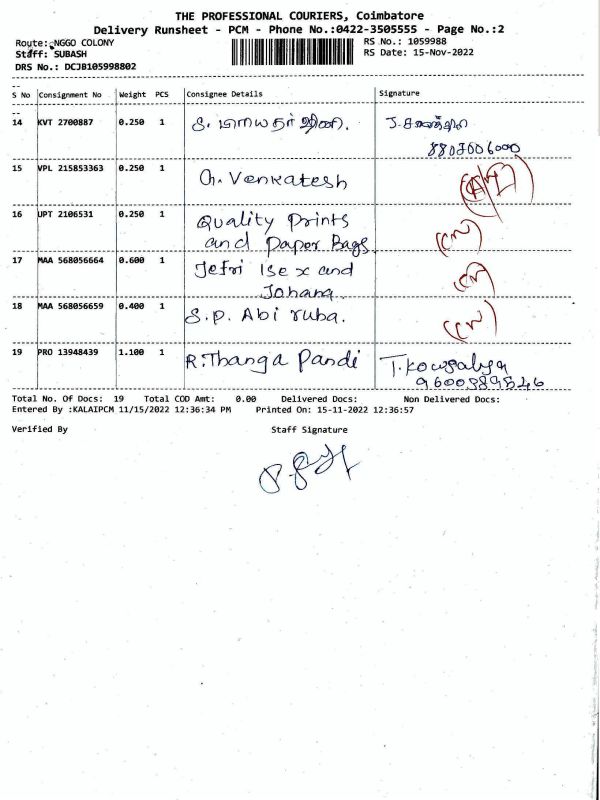 THE PROFESSIONAL COURIERS, Coimbatore
Delivery Runsheet - PCM - Phone No.:0422-3505555 - Page No.:2
Route: NGGO COLONY RS No.: 1059988
Staff: SUBASH RS Date: 15-Nov-2022
DRS No.: DCJB105998802
S No Consignment No Weight PCS Consignee Details Signature
14 KVT 2700887 0.250 1
15 VPL 215853363 0.250 1 G. Venkatesh
16 UPT 2106531 0.250 1 Quality Prints
and Paper Bags (CN)
17 MAA 568056664 0.600 1 Jefri and
(CN)
18 MAA 568056659 0.400 1 S.P. Abi ruba. (CN)
19 PRO 13948439 1.100 1 R.Thanga Pandi T.Kowsalya
Total No. Of Docs: 19 Total COD Amt: 0.00 Delivered Docs: Non Delivered Docs:
Entered By :KALAIPCM 11/15/2022 12:36:34 PM Printed On: 15-11-2022 12:36:57
Verified By Staff Signature